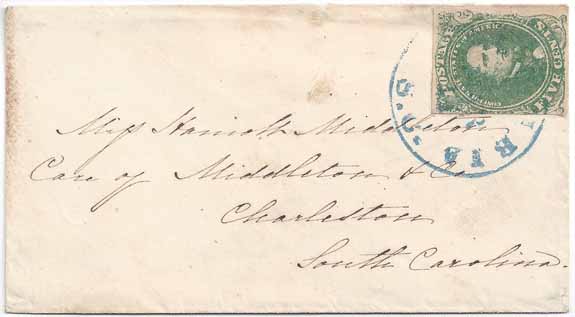 POSTAGE
CONFEDERATE STATES OF AMERICA
FIVE CENTS
S.C.
Miss Harriott Middleton
Care of Middleton & Co
Charleston
South Carolina.